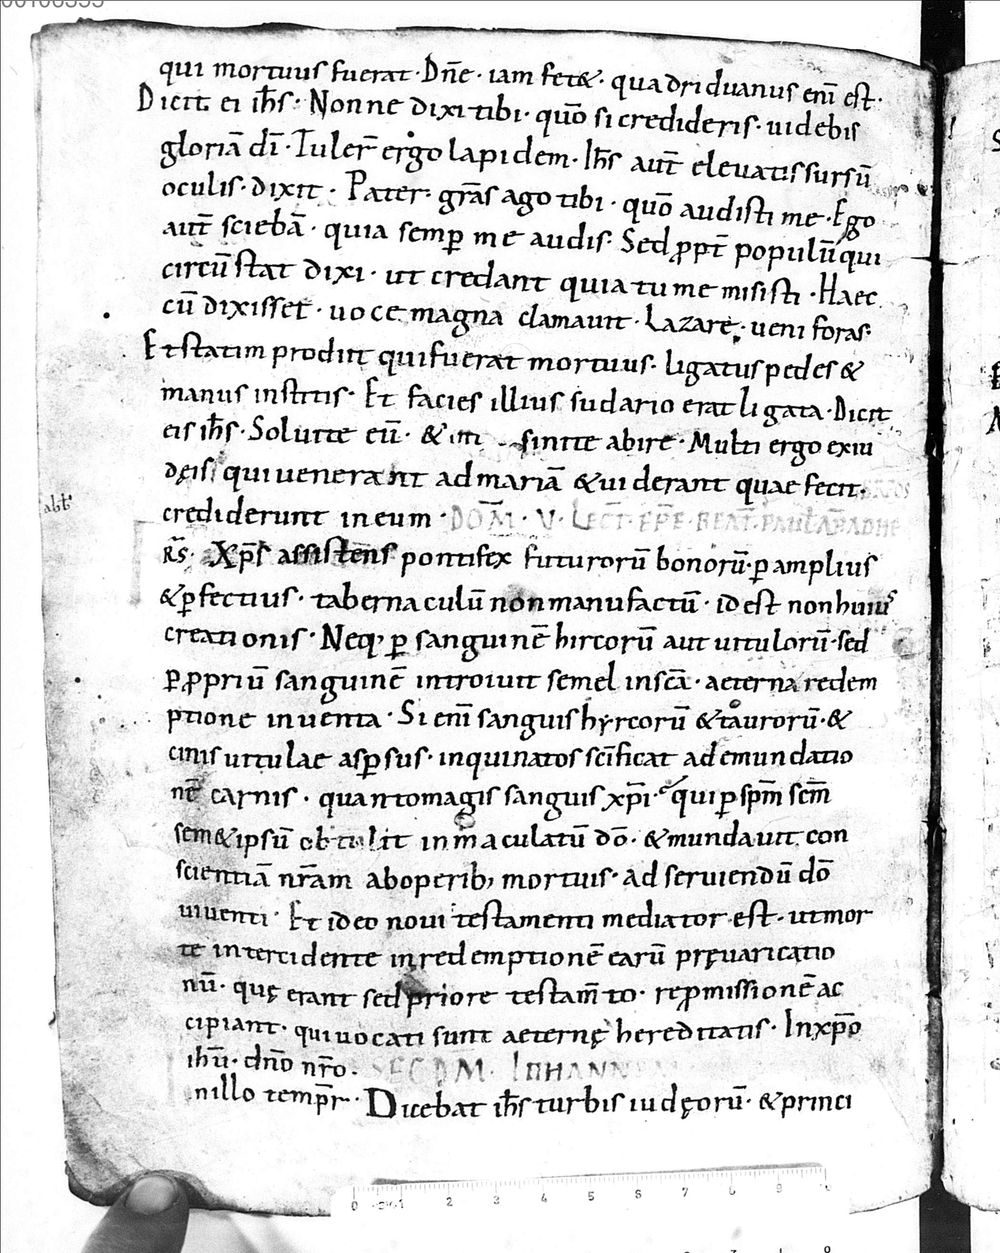 qui mortuus fuerat · Dn̄e · iam fet& · quadriduanus eni̅ est ·
Dicit ei ih̄s · Nonne dixi tibi · quō si credideris · uidebis
gloriā dī · Tuler̄ ergo lapidem · Ih̄s aut̄ eleuatis sursū
oculis · dixit · Pater · gr̄as ago tibi · quō audisti me · Ego
aut̄ sciebā · quia semꝑ me audis · Sed ꝓpt̄ populū qui
circūstat dixi · ut credant quia tu me misisti · Haec
cū dixisset · uoce magna clamauit · Lazare · ueni foras ·
Et statim prodiit qui fuerat mortuus · ligatus pedes &
manus institis · Et facies illius sudario erat ligata · Dicit
eis ih̄s · Soluite eū · & sinite abire · Multi ergo exiu
dęis qui uenerant ad mariā & uiderant quae fecit ·
crediderunt in eum · DOM̄ · V · LECT̄ · EP̄E · BEAT̄ · PAULI
R̄S · Xp̄s assistens pontifex futurorū bonorū · ꝑ amplius
& ꝑfectius · tabernaculū non manufactū · id est non huius
creationis · Neq; ꝑ sanguinē hircorū aut uitulorū · sed
ꝑ ꝓpriū sanguinē introiuit semel in sc̄a · aeterna redem
ptione inuenta · Si eni̅ sanguis hyrcorū & taurorū · &
cinis uitulae asꝑsus · inquinatos sc̄ificat ad emundatio
nē carnis · quanto magis sanguis xp̄i · qui ꝑ spm̄ scm̄
sem&ipsū obtulit inmaculatū dō · & mundauit con
scientiā nr̄am ab operib; mortuis · ad seruiendū dō
uiuenti · Et ideo noui testamenti mediator est · ut mor
te intercidente in redemptionē earū pręuaricatio
nū · quę erant sed priore testam̄to · repromissionē ac
cipiant · qui uocati sunt aeternę hereditatis · In xp̄o
ihū · dn̄o nr̄o · SECDM̄ · IOHANN
nillo tempr̄ · Dicebat ih̄s turbis iudęorū · & princi
0 1 2 3 4 5 6 7 8 9